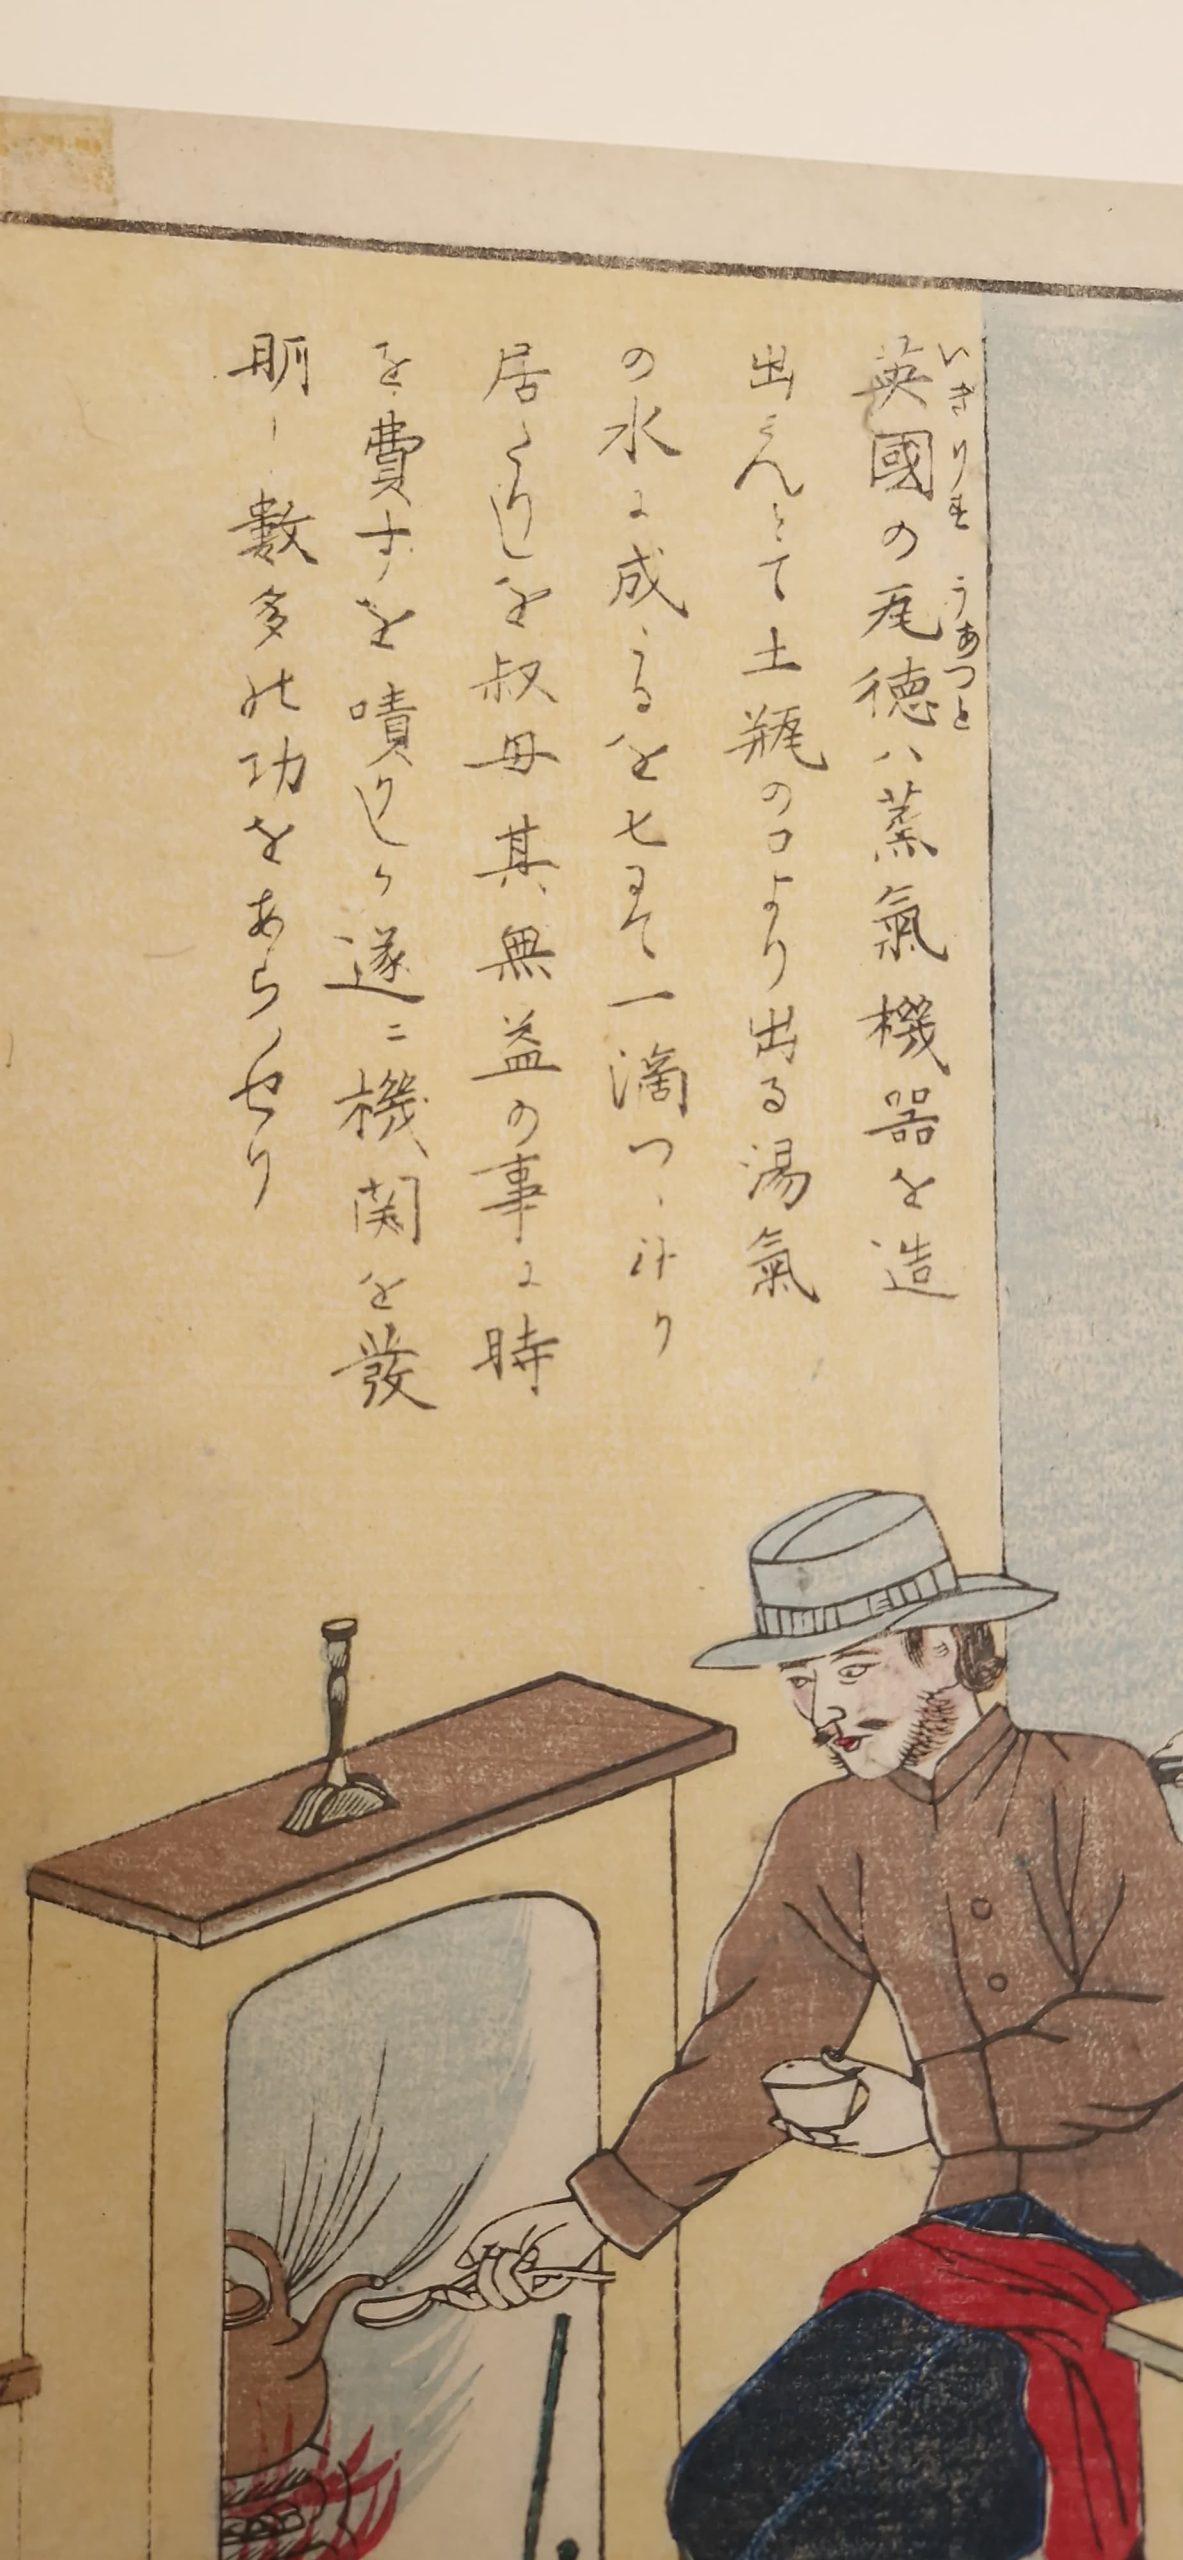 いぎりす うあつと
英國の瓦徳ハ蒸氣機器を造
出さんとて土瓶の口より出る湯氣
の水に成たるを匕にて一滴つゝ計り
居たりしを叔母其無益の事に時
を費すを嘖りしが遂ニ機関を發
明し數多の功をあらハせり